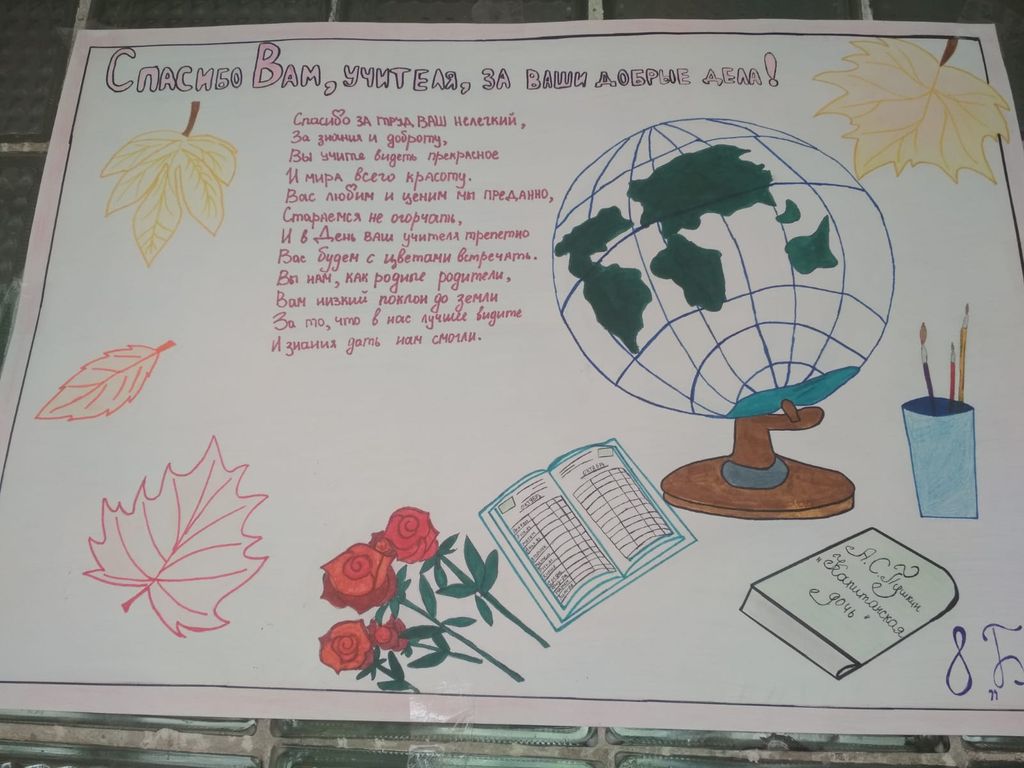 Спасибо Вам, учителя, за ваши добрые дела!
Спасибо за труд ваш нелегкий,
За знания и доброту,
Вы учите видеть прекрасное
И мира всего красоту.
Вас любим и ценим мы преданно,
Стараемся не огорчать,
И в День ваш учителя трепетно
Вас будем с цветами встречать.
Вы нам, как родные родители,
Вам низкий поклон до земли
За то, что в нас лучшее видите
И знания дать нам смогли.
октябрь
А. С. Пушкин
"Капитанская
дочь"
8 "Б